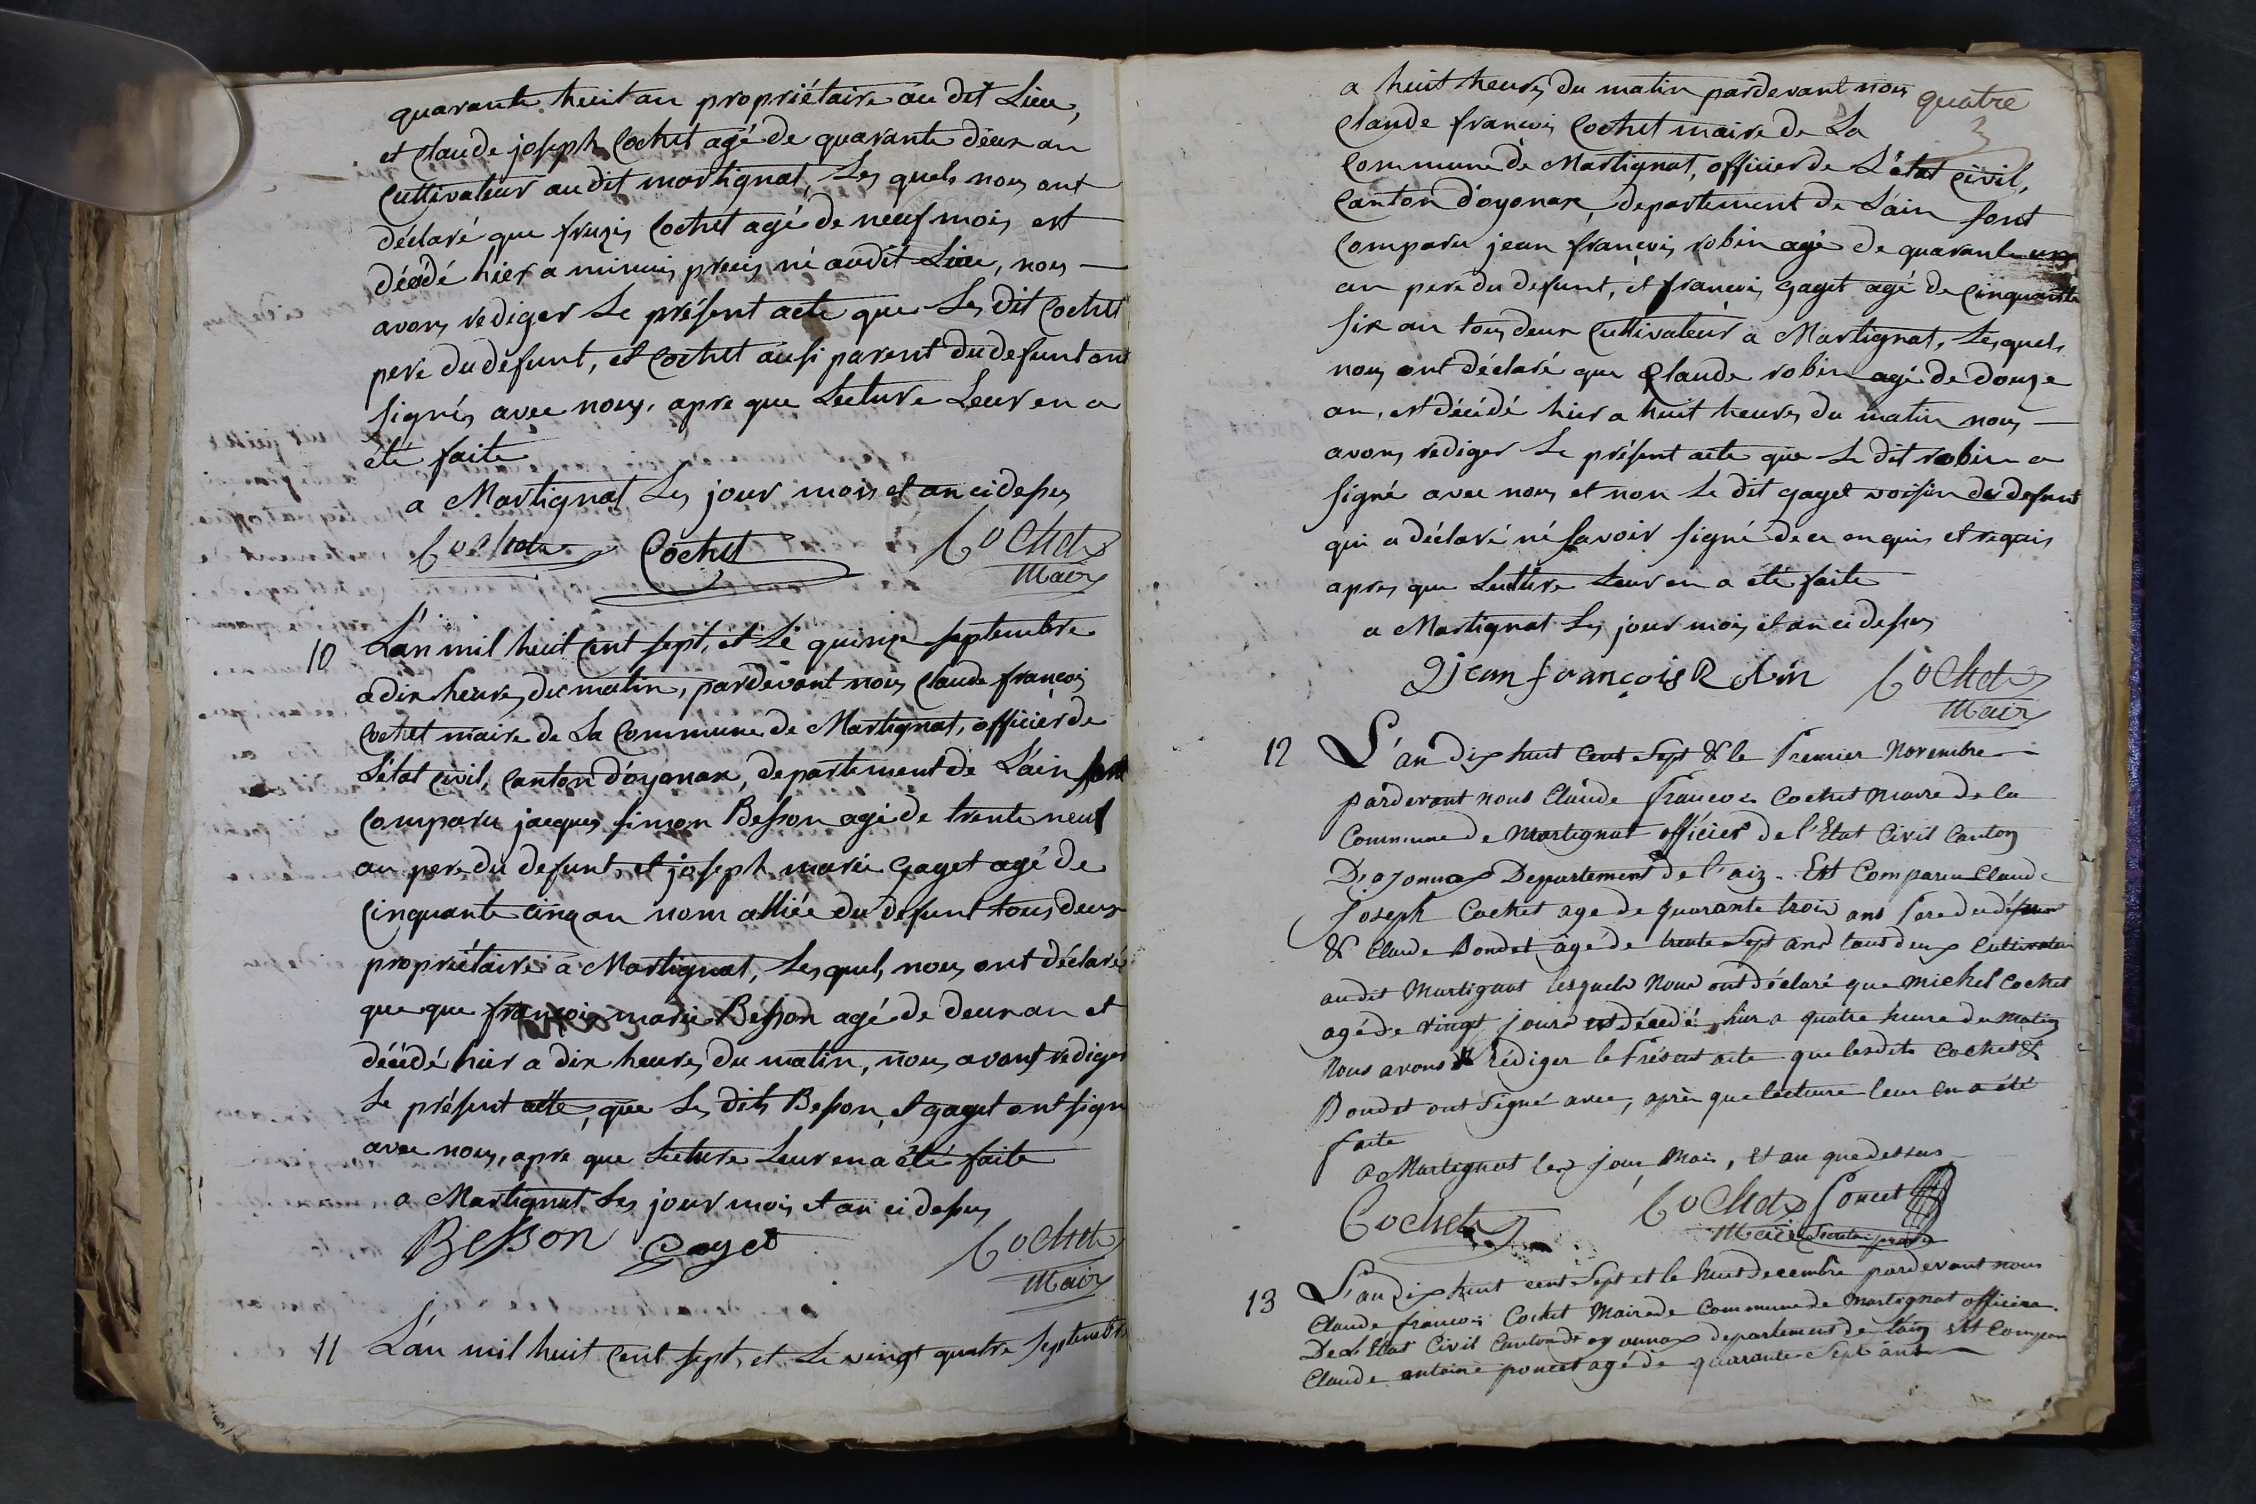 quarante huit an propriétaire au dit Lieu,
et Claude joseph Cochet agé de quarante deux an
Cultivateur au dit martignat, Les quels nous ont
déclaré que Cochet agé de neuf mois est
décédé hier a minuis precis né au dit Lieu, nous
avons rediger Le présent acte que Les dit Cochet
pere du defunt, et Cochet ausi parent du defunt ont
signés avec nous, apre que Lecture Leur en a
été faite
a Martignat Les jour mois et an ci desus
Cochet Cochet Cochet
Maire
10 L'an mil huit Cent sept, et Le quinze septembre
a dix heures du matin, pardevant nous Claude françois
Cochet maire de La Commune de Martignat, officier de
L'état civil, Canton d'oyonax, departement de L'ain sont
Comparu jacques simon Besson agé de trente neuf
an pere du defunt, et joseph marie gaget agé de
Cinquante cinq an nom alliée du defunt tous deux
propriétaire a Martignat, Lesquels nous ont déclaré
que que françois marie Besson agé de deux an et
décédé hier a dix heures du matin, nous avons rediger
Le présent acte, que Les dits Besson, et gaget ont signé
avec nous, apre que Lecture Leur en a été faite
a Martignat Les jour mois et an ci desus
Besson Gaget Cochet
Maire
11 L'an mil huit Cent sept, et Le vingt quatre septembre
a huit heures du matin pardevant nous quatre
Claude françois Cochet maire de La
Commune de Martignat, officier de L'état civil,
Canton d'oyonax, departement de L'ain sont
Comparu jean françois robin agé de quarante
an pere du defunt, et françois gaget agé de Cinquante
six an tous deux Cultivateur a Martignat, Lesquels
nous ont déclaré que Claude robin agé de douze
an, est décédé hier a huit heures du matin nous
avons rediger Le présent acte que Le dit robin a
signé avec nous et non Le dit gaget voisin du defunt
qui a déclaré né savoir signé de ce enquis et requis
apres que Lecture Leur en a été faite
a Martignat Les jour mois et an ci desus
jean françois Robin Cochet
Maire
12 L'an dix huit Cent Sept & le Premier Novembre
pardevant nous Claude françois Cochet Maire de la
Commune de Martignat officier de l'Etat Civil Canton
D'oyonnax Departement de l'ain. Est Comparu Claude
Joseph Cochet age de quarante trois ans Pere du défunt
& Claude Bondet âgé de trente Sept ans tous deux Cultivateur
audit Martignat lesquels Nous ont déclaré que michel Cochet
agé de vingt jours est décedé, hier a quatre heure du Matin
Nous avons rédiger le Présent acte que lesdits Cochet &
Bondet ont Signé avec, après que lecture leur en a été
faite
a Martignat les jour Mois, et an que dessus
Cochet Cochet Poncet
Maire
13 L'an dix huit cent Sept et le huit decembre pardevant nous
Claude françois Cochet Maire de Commune de Martignat officier
De l'Etat Civil Canton de oyonnax departement de lain est Comparu
Claude antoine poncet agé de quarante Sept ans